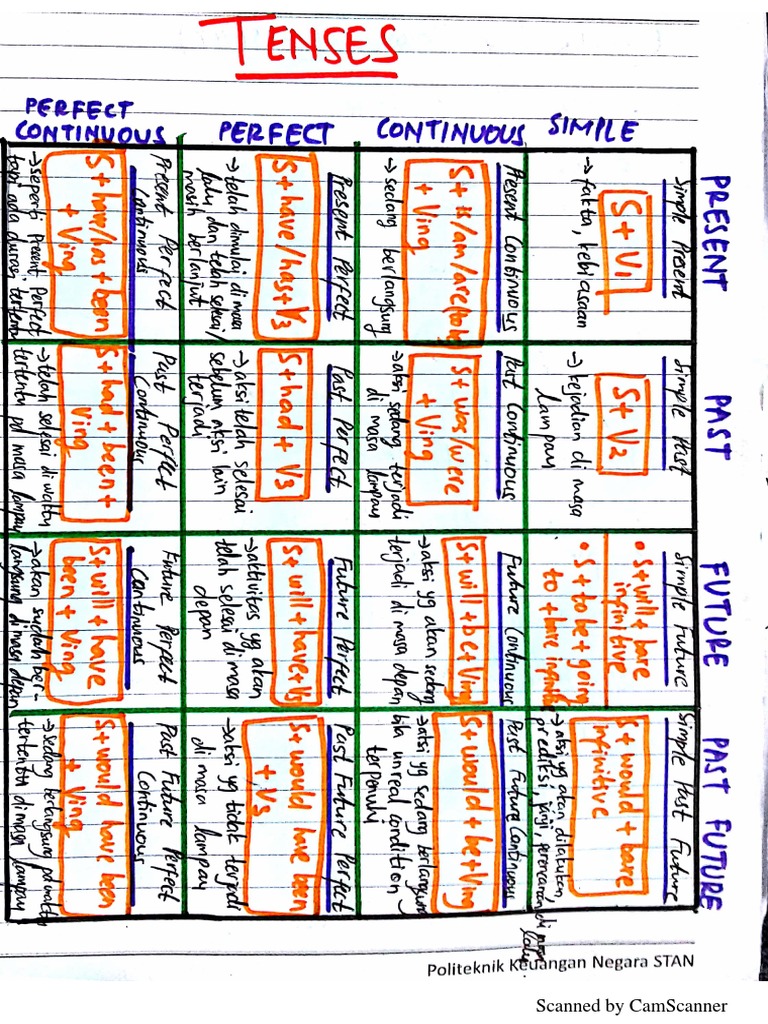 TENSES
PERFECT
CONTINUOUS
PERFECT
CONTINUOUS
SIMPLE
PRESENT
Simple Present
S + V1
→ fakta, kebiasaan
Present Continuous
S + is/am/are (tobe)
+ Ving
→ sedang berlangsung
Present Perfect
S + have/has + V3
→ telah dimulai di masa
lalu dan telah selesai/
masih berlanjut
Present Perfect
Continuous
S + have/has + been
+ Ving
→ seperti Present Perfect
tapi ada durasi tertentu
PAST
Simple Past
S + V2
→ kejadian di masa
lampau
Past Continuous
S + was/were
+ Ving
→ aksi sedang terjadi
di masa lampau
Past Perfect
S + had + V3
→ aksi telah selesai
sebelum aksi lain
terjadi
Past Perfect
Continuous
S + had + been +
Ving
→ telah selesai di waktu
tertentu pd masa lampau
FUTURE
Simple Future
• S + will + bare
infinitive
• S + to be + going
to + bare infinitive
Future Continuous
S + will + be + Ving
→ aksi yg akan sedang
terjadi di masa depan
Future Perfect
S + will + have + V3
→ aktivitas yg akan
telah selesai di masa
depan
Future Perfect
Continuous
S + will + have
been + Ving
→ akan sudah ber-
langsung di masa depan
PAST FUTURE
Simple Past Future
S + would + bare
infinitive
→ aksi yg akan dilakukan,
prediksi, janji, perencanaan di masa
lalu
Past Future Continuous
S + would + be + Ving
→ aksi yg sedang berlangsung
bila unreal condition
terpenuhi
Past Future Perfect
S + would have been
+ V3
→ aksi yg tidak terjadi
di masa lampau
Past Future Perfect
Continuous
S + would have been
+ Ving
→ sedang berlangsung pd waktu
tertentu di masa lampau
Politeknik Keuangan Negara STAN
Scanned by CamScanner